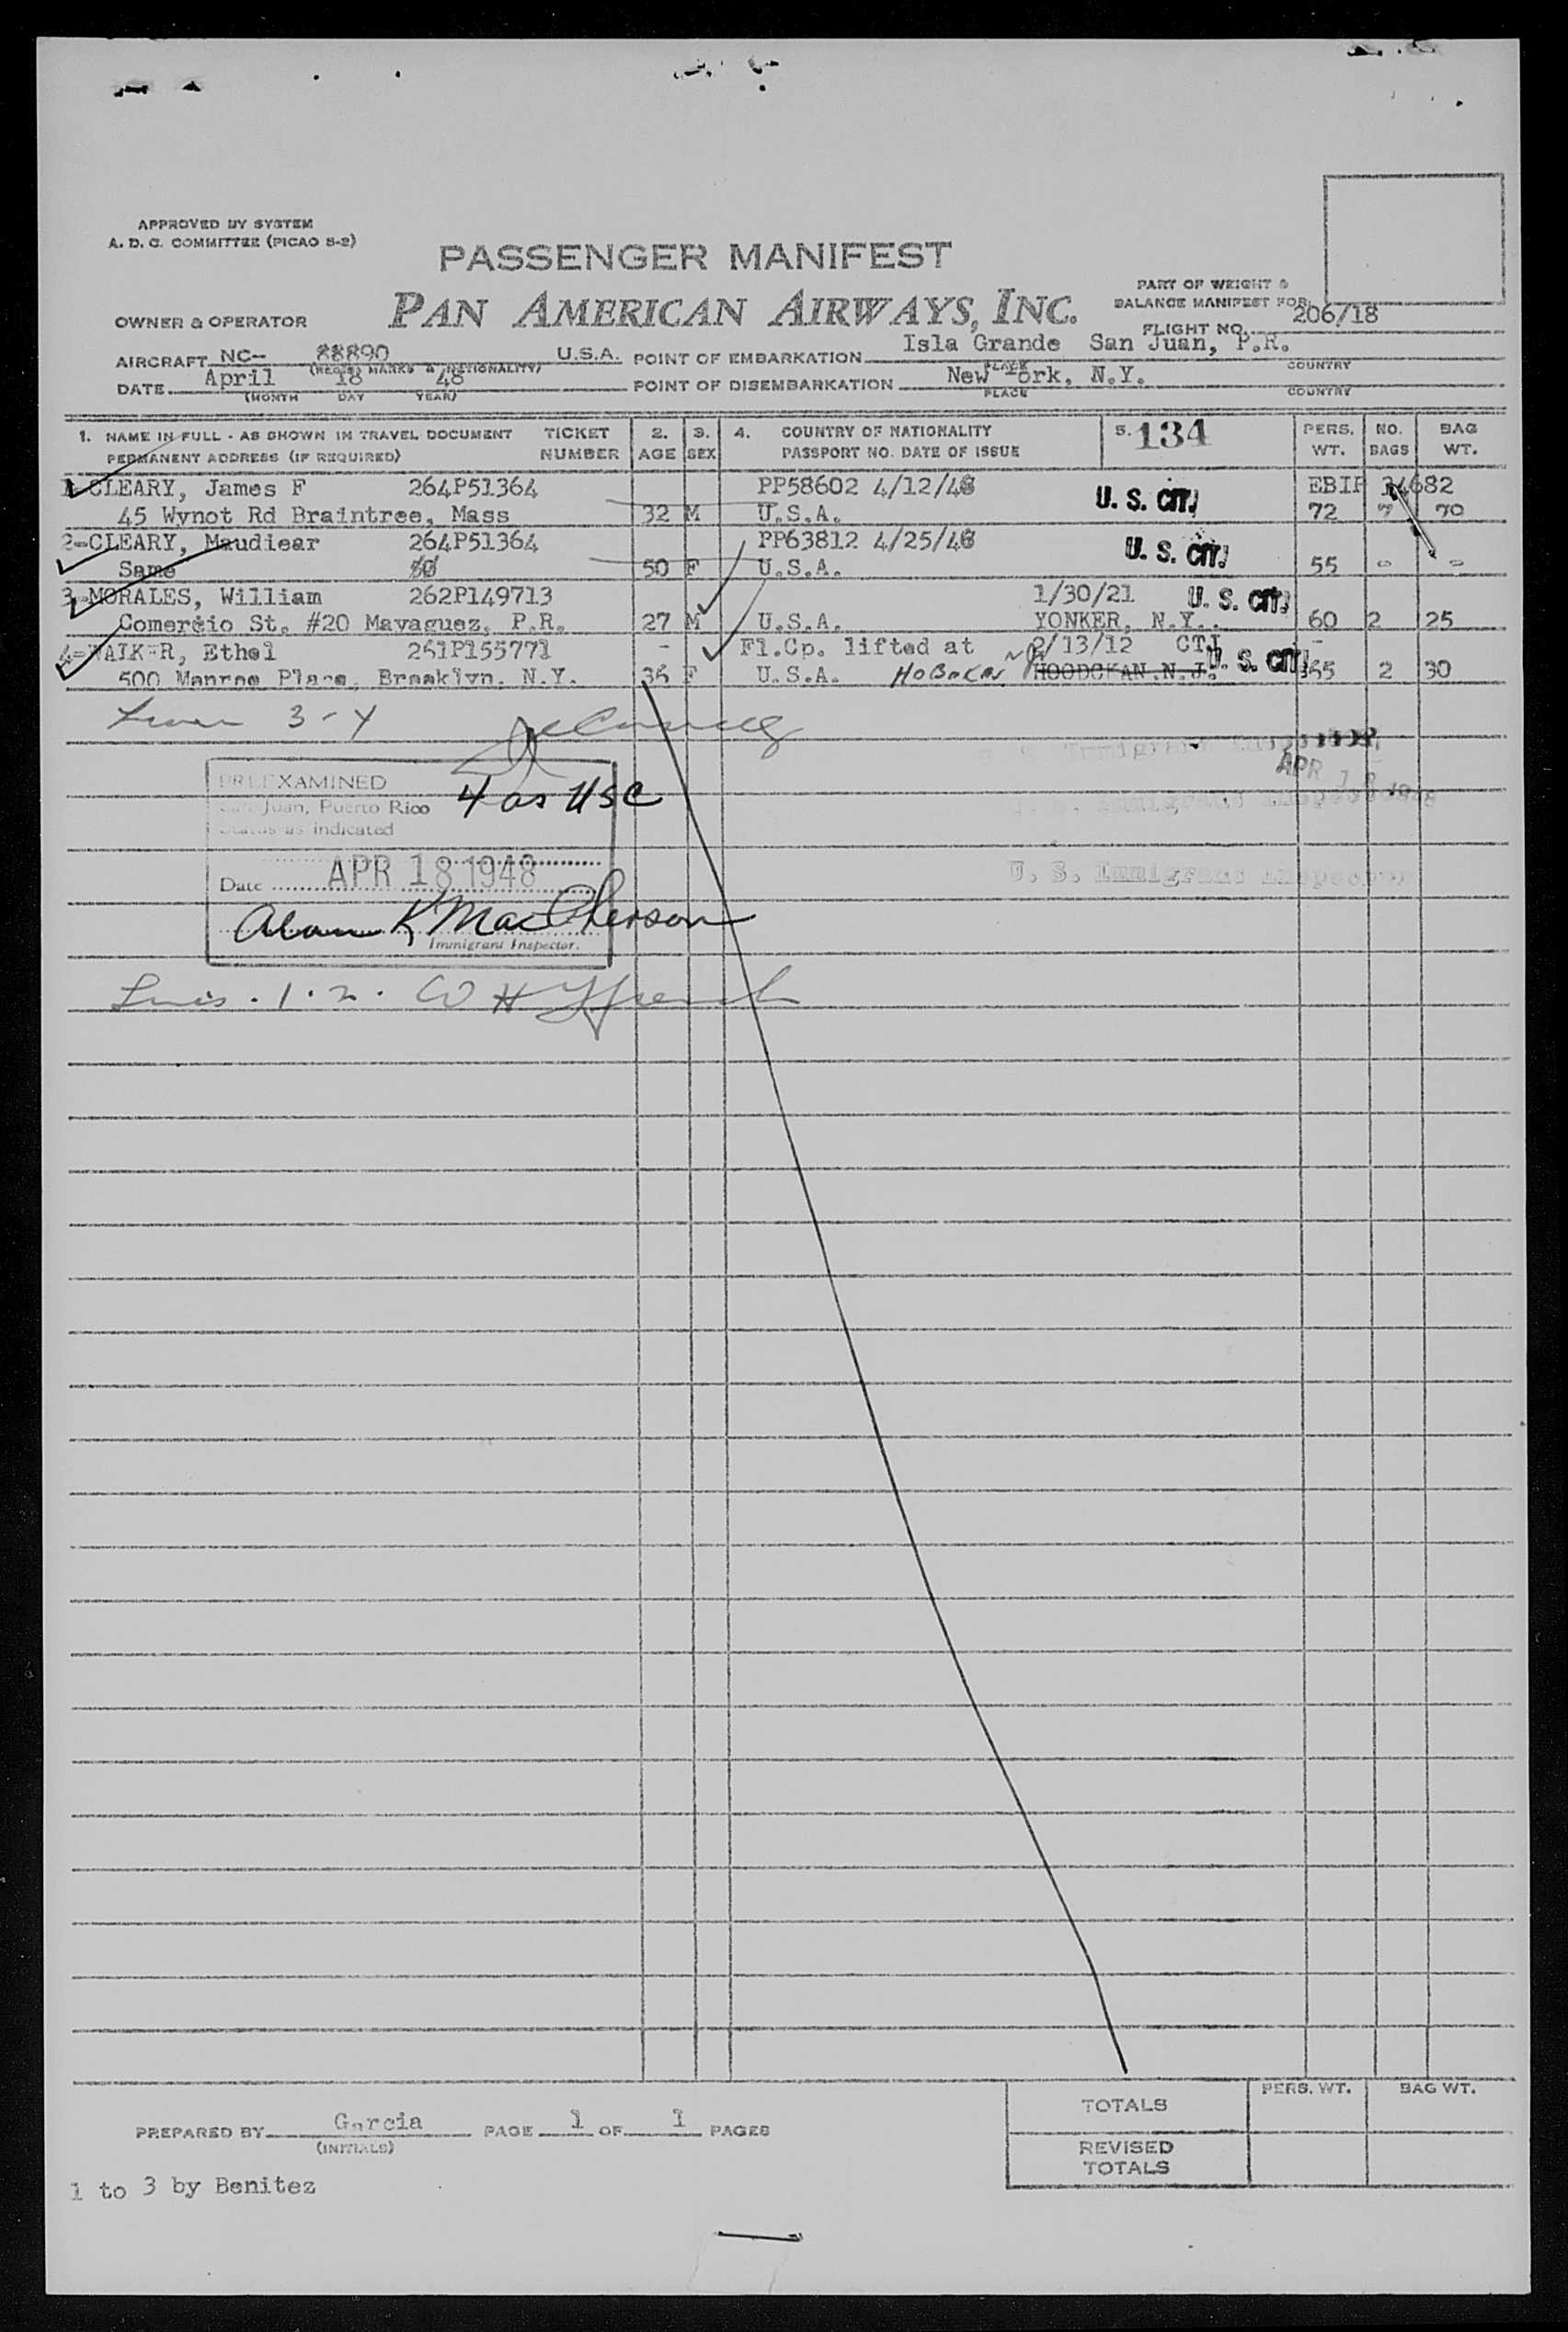 APPROVED BY SYSTEM
A. D. C. COMMITTEE (PICAO S-2)
PASSENGER MANIFEST
PAN AMERICAN AIRWAYS, INC.
PART OF WEIGHT &
BALANCE MANIFEST FOR
FLIGHT NO. 206/18
OWNER & OPERATOR
AIRCRAFT NC- 88890 U.S.A. POINT OF EMBARKATION Isla Grande San Juan, P.R.
(REGIS. MARKS & NATIONALITY) PLACE COUNTRY
DATE April 18 48 POINT OF DISEMBARKATION New York, N.Y.
(MONTH DAY YEAR) PLACE COUNTRY
1. NAME IN FULL - AS SHOWN IN TRAVEL DOCUMENT TICKET 2. 3. 4. COUNTRY OF NATIONALITY 5. 134 PERS. NO. BAG
PERMANENT ADDRESS (IF REQUIRED) NUMBER AGE SEX PASSPORT NO. DATE OF ISSUE WT. BAGS WT.
1-CLEARY, James F 264P51364 PP58602 4/12/48 U. S. CIT. EBIP
45 Wynot Rd Braintree, Mass 32 M U.S.A. 72 7 70
2-CLEARY, Maudiear 264P51364 PP63812 4/25/46 U. S. CIT.
Same 50 F U.S.A. 55 - -
3-MORALES, William 262P149713 1/30/21 U. S. CIT.
Comercio St. #20 Mayaguez, P.R. 27 M U.S.A. YONKER, N.Y. 60 2 25
4-WALKER, Ethel 261P155771 - Fl.Cp. lifted at 2/13/12 U. S. CIT. -
500 Monroe Place, Brooklyn, N.Y. 36 F U.S.A. HOBOKEN NJ HOODCKAN.N.J. 65 2 30
3-4
PREEXAMINED
San Juan, Puerto Rico 4 as USC
Status as indicated
Date APR 18 1948
Alan K MacPherson
Immigrant Inspector.
APR 18 1948
U. S. Immigrant Inspector
U. S. Immigrant Inspector
U. S. Immigrant Inspector
1 . 2 . W H
PREPARED BY Garcia PAGE 1 OF 1 PAGES
(INITIALS)
TOTALS PERS. WT. BAG WT.
REVISED
TOTALS
1 to 3 by Benitez